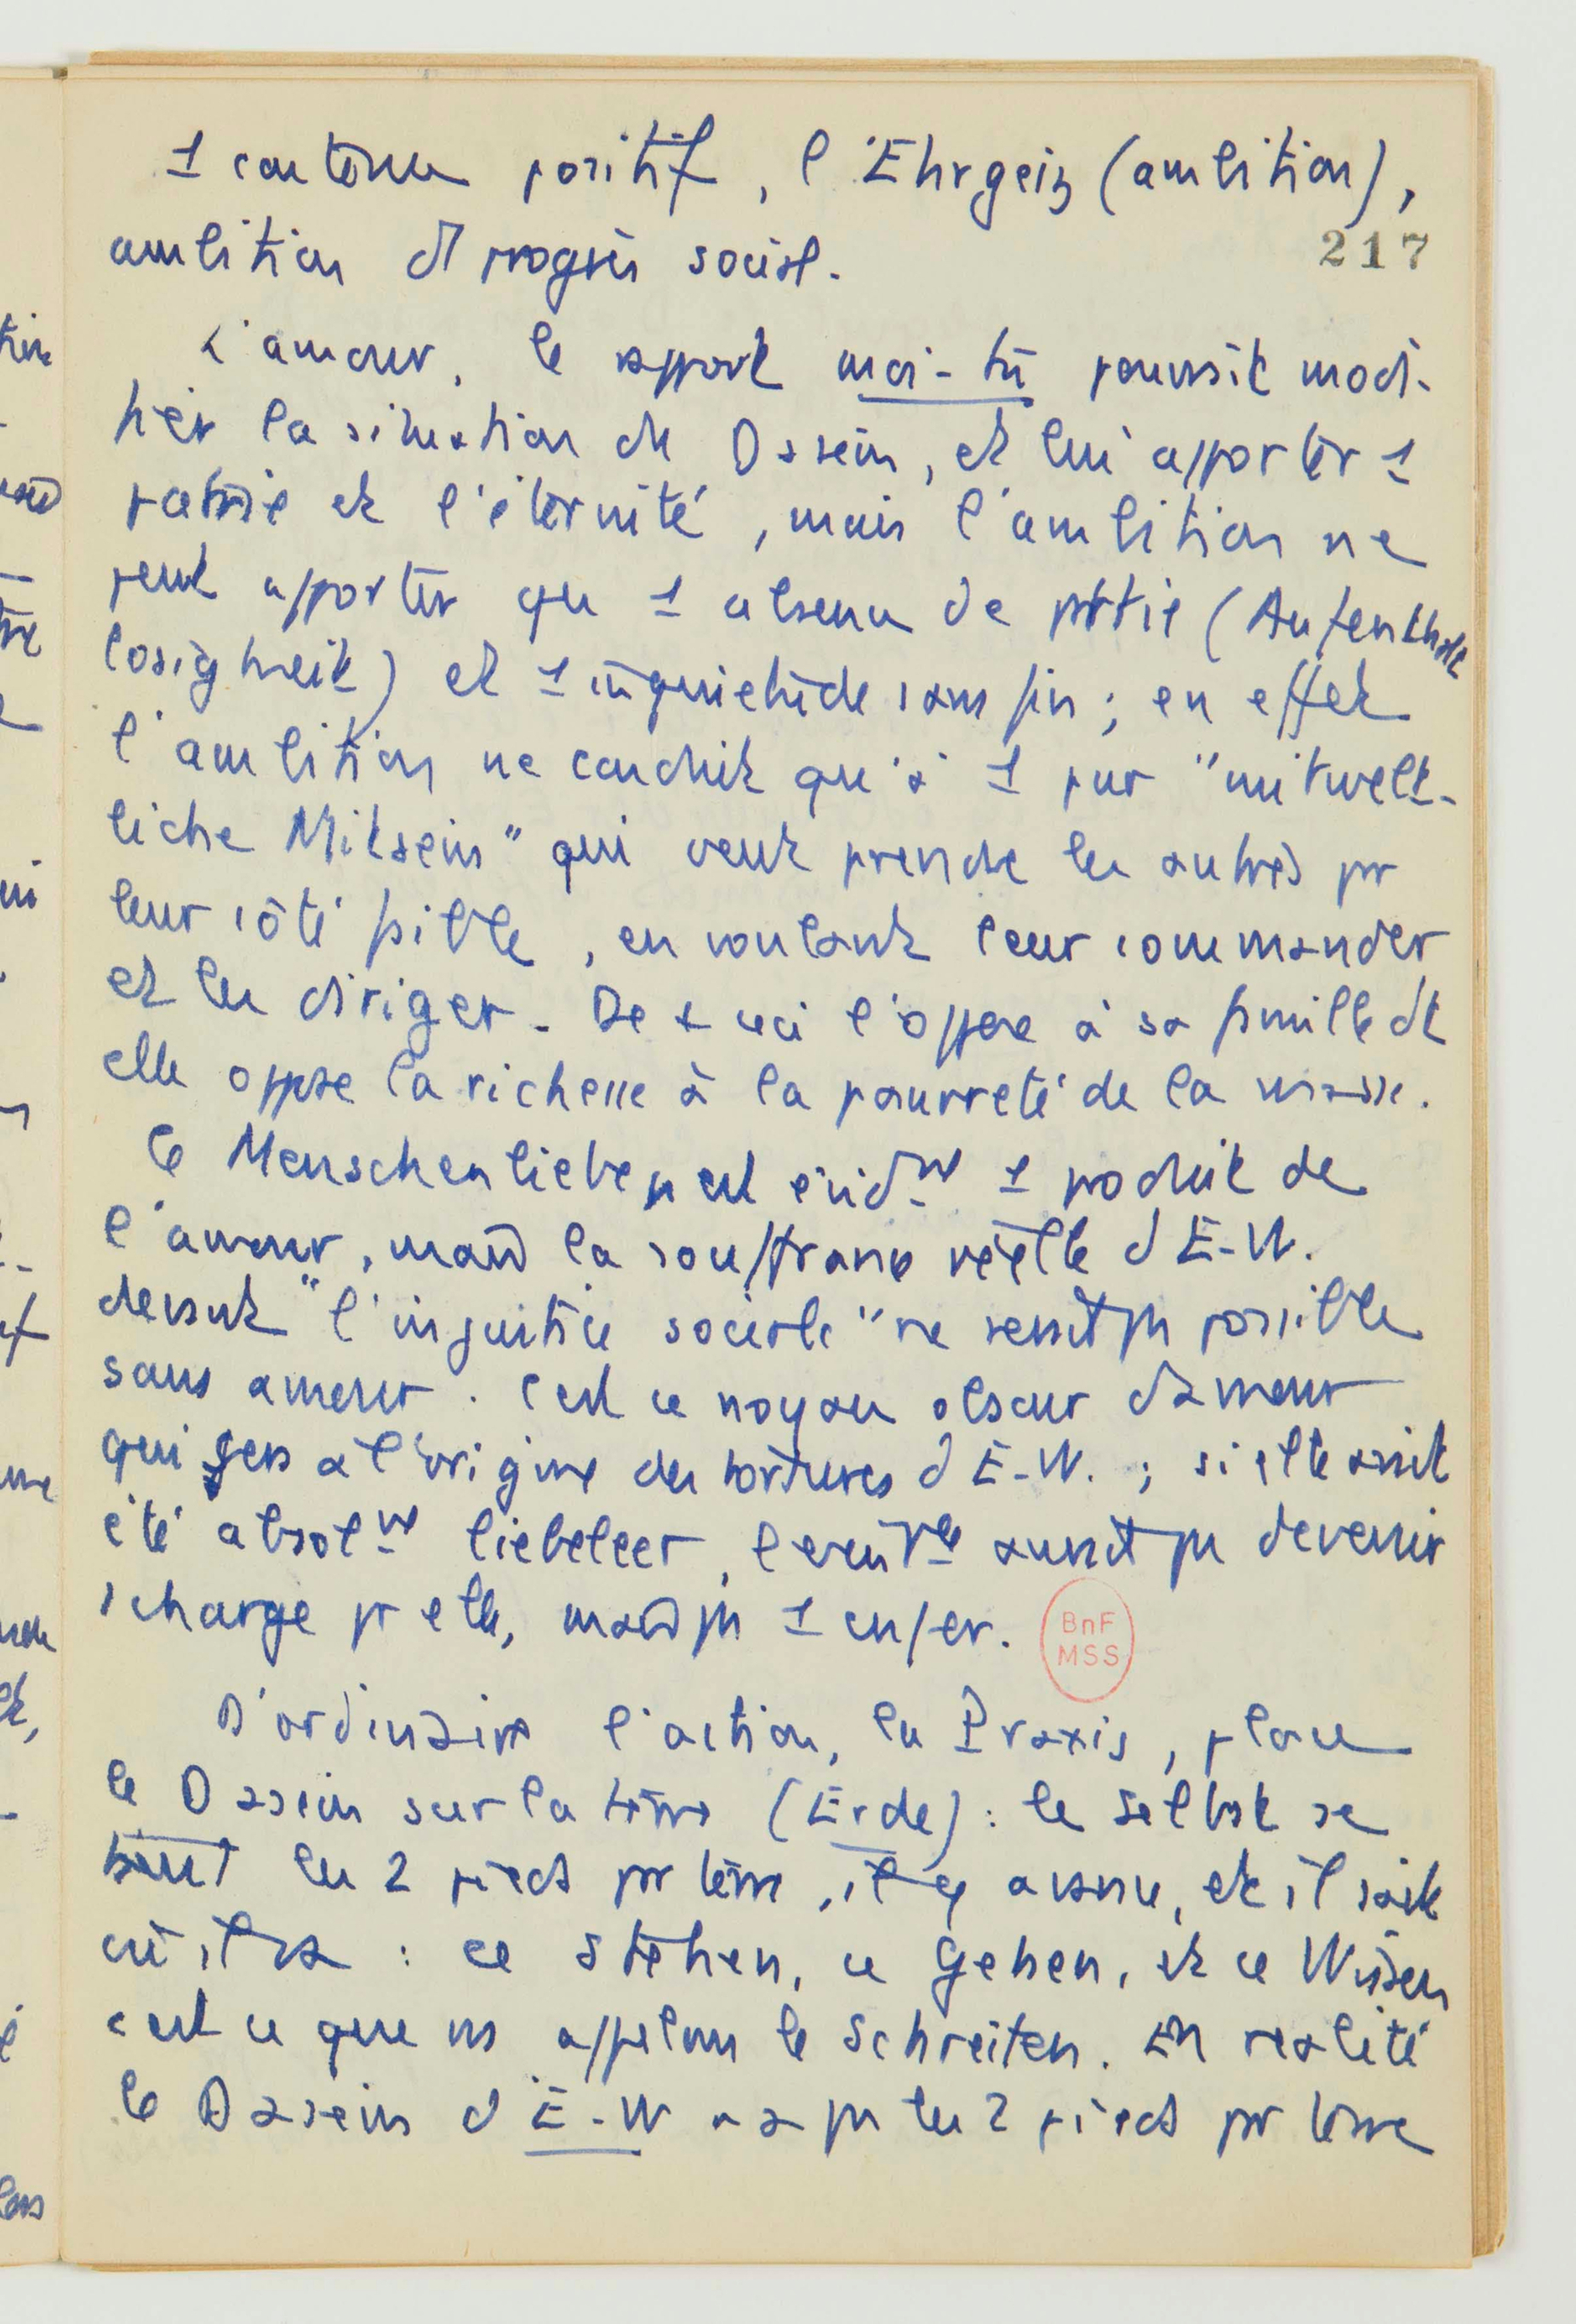 1 contenu positif, l'Ehrgeiz (ambition),
ambition d progrès social.
217
L'amour, le rapport moi-tu pourrait modi-
fier la situation du Dasein, et lui apporter 1
patrie et l'éternité, mais l'ambition ne
peut apporter qu 1 absence de patrie (Aufenthalt
losigkeit) et 1 inquiétude sans fin ; en effet
l'ambition ne conduit qu'à 1 pur "mitwelt-
liche Mitsein" qui veut prendre les autres pr
leur côté faible, en voulant leur commander
et les diriger. De + ceci l'oppose à sa famille dt
elle oppse la richesse à la pauvreté de la masse.
Le Menschenliebe est évidmt 1 produit de
l'amour, mais la souffrance réelle d E-W.
devant "l'injustice sociale" ne serait pas possible
sans amour. C'est ce noyau obscur d'amour
qui à l'origine des tortures d E-W. ; si elle avait
été absolmt liebeleer, l'existence aurait pu devenir
1 charge pr elle, mais pas 1 enfer.
BnF
MSS
D'ordinaire l'action, la Praxis, place
le Dasein sur la terre (Erde) : le Selbst se
tient les 2 pieds pr terre, il y avance, et il sait
où il va : ce Stehen, ce Gehen, et ce Wissen
c'est ce que ns appelons le Schreiten. En réalité
le Dasein d E-W n'a pas les 2 pieds pr terre